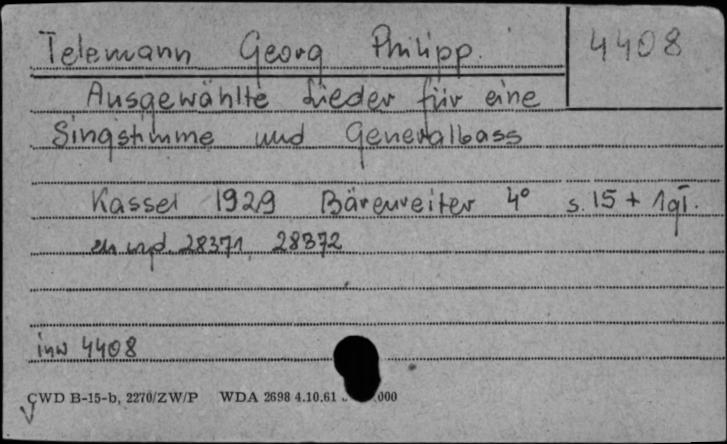 Telemann Georg Philipp.
4408
Ausgewählte Lieder für eine
Singstimme und Generalbass
Kassel 1929 Bärenreiter 4° s. 15 + 1 gł.
28371, 28372
inw 4408
CWD B-15-b, 2270/ZW/P WDA 2698 4.10.61 000